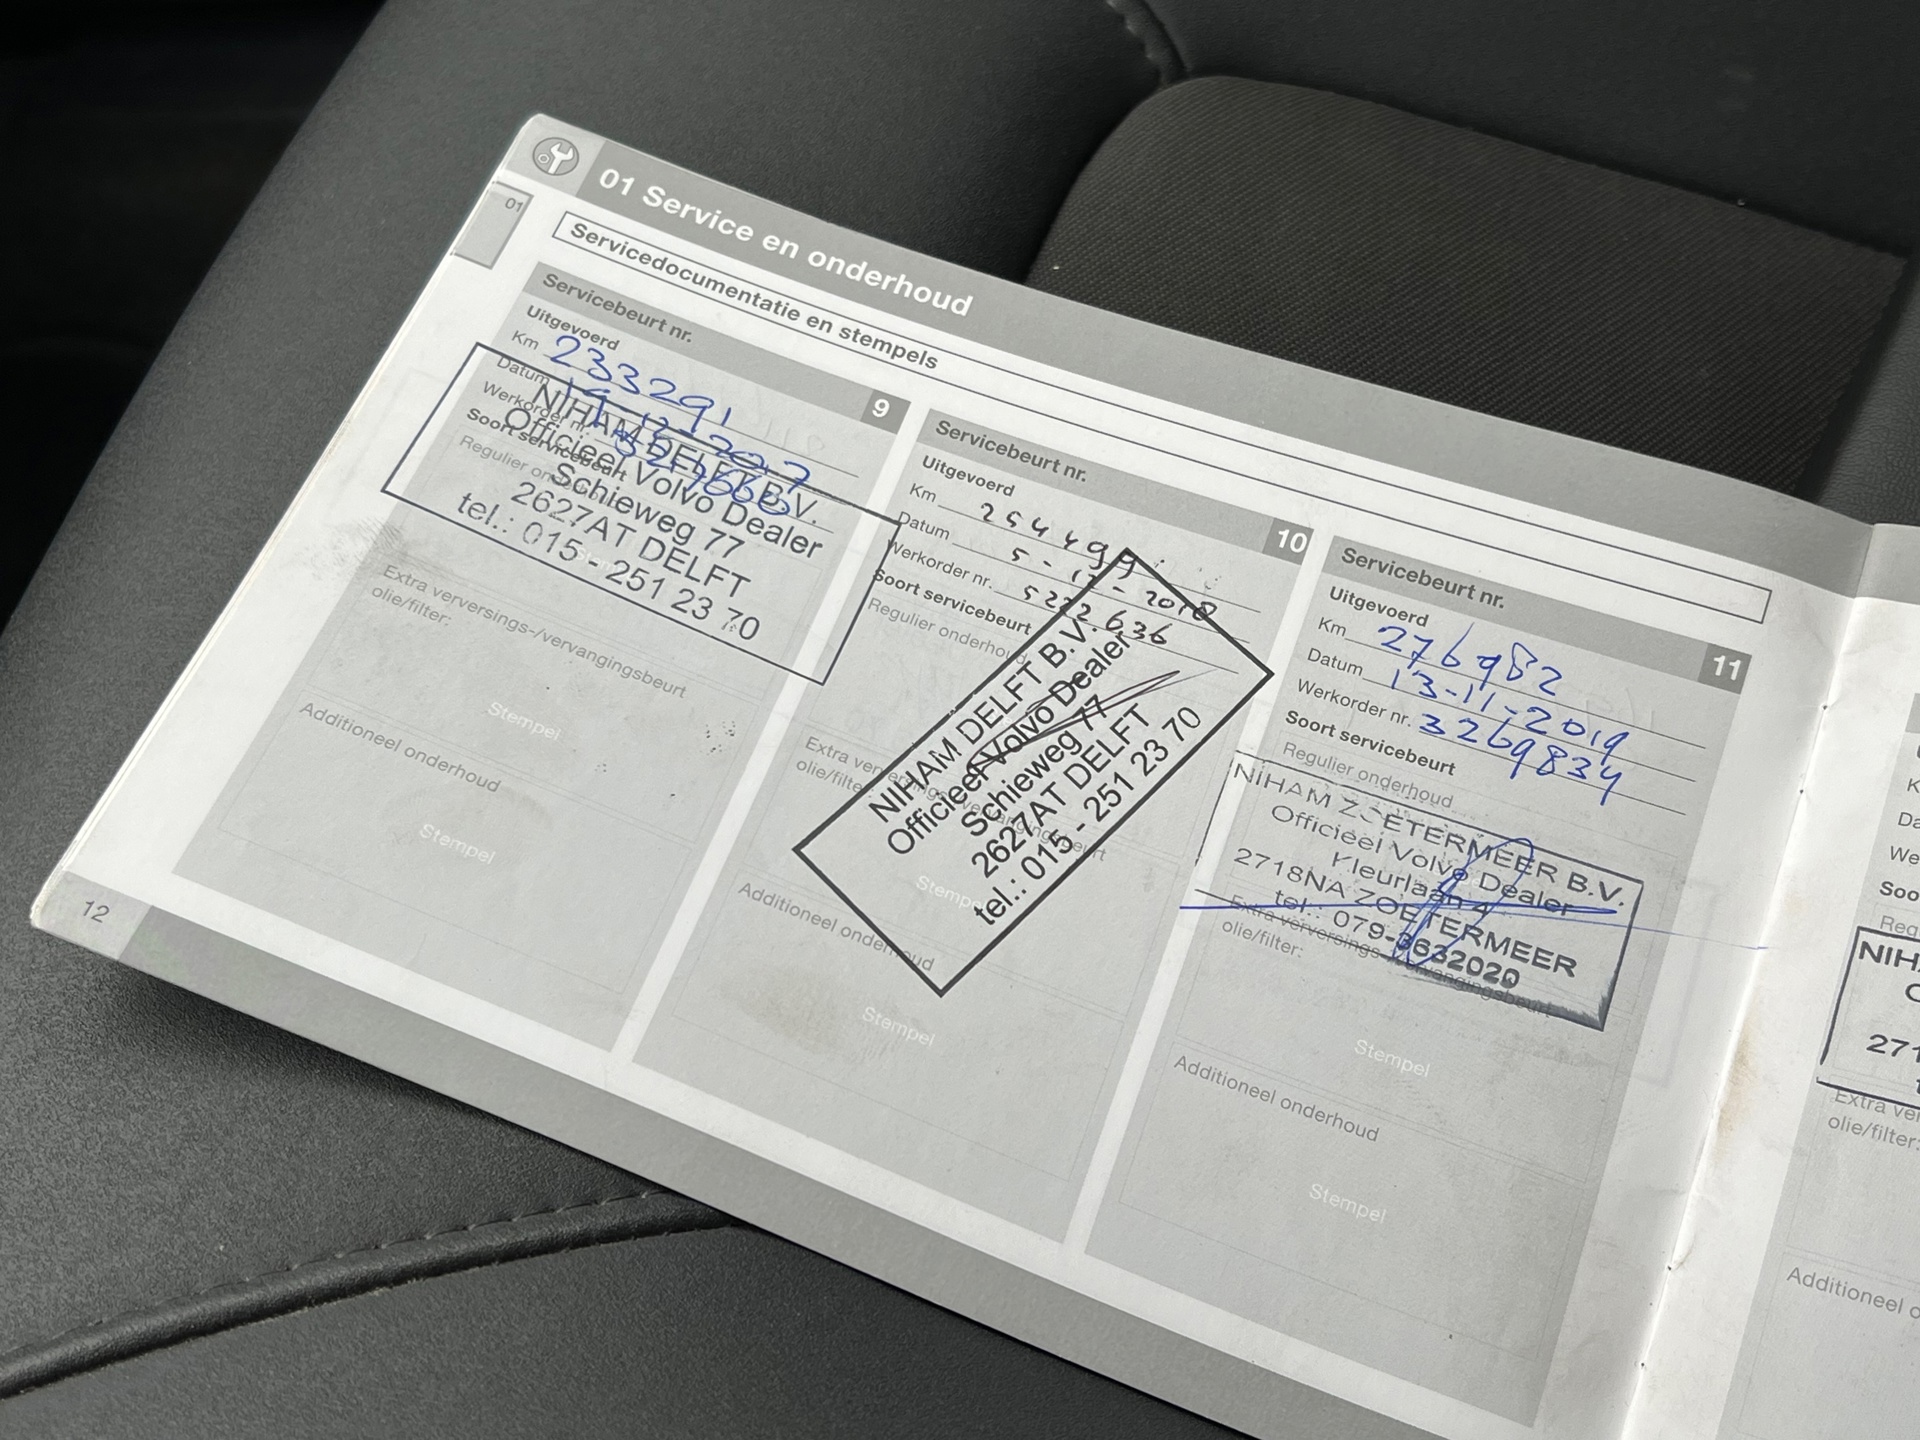 01 Service en onderhoud
01
Servicedocumentatie en stempels
Servicebeurt nr. 9
Uitgevoerd
Km 233291
Datum
Werkorder nr.
Soort servicebeurt
Regulier
NIHAM DELFT B.V.
Officieel Volvo Dealer
Schieweg 77
2627AT DELFT
tel.: 015 - 251 23 70
Extra verversings-/vervangingsbeurt
olie/filter:
Stempel
Additioneel onderhoud
Stempel
12
Servicebeurt nr. 10
Uitgevoerd
Km 254499
Datum 5-12-2018
Werkorder nr. 5222636
Soort servicebeurt
Regulier onderhoud
NIHAM DELFT B.V.
Officieel Volvo Dealer
Schieweg 77
2627AT DELFT
tel.: 015 - 251 23 70
Extra verversings-/vervangingsbeurt
olie/filter:
Stempel
Additioneel onderhoud
Stempel
Servicebeurt nr. 11
Uitgevoerd
Km 276982
Datum 13-11-2019
Werkorder nr. 3269834
Soort servicebeurt
Regulier onderhoud
NIHAM ZOETERMEER B.V.
Officieel Volvo Dealer
Kleurlaan 4
2718NA ZOETERMEER
tel.: 079-3632020
Extra verversings-/vervangingsbeurt
olie/filter:
Stempel
Additioneel onderhoud
Stempel
Soo
NIH
271
olie/filter:
Additioneel o